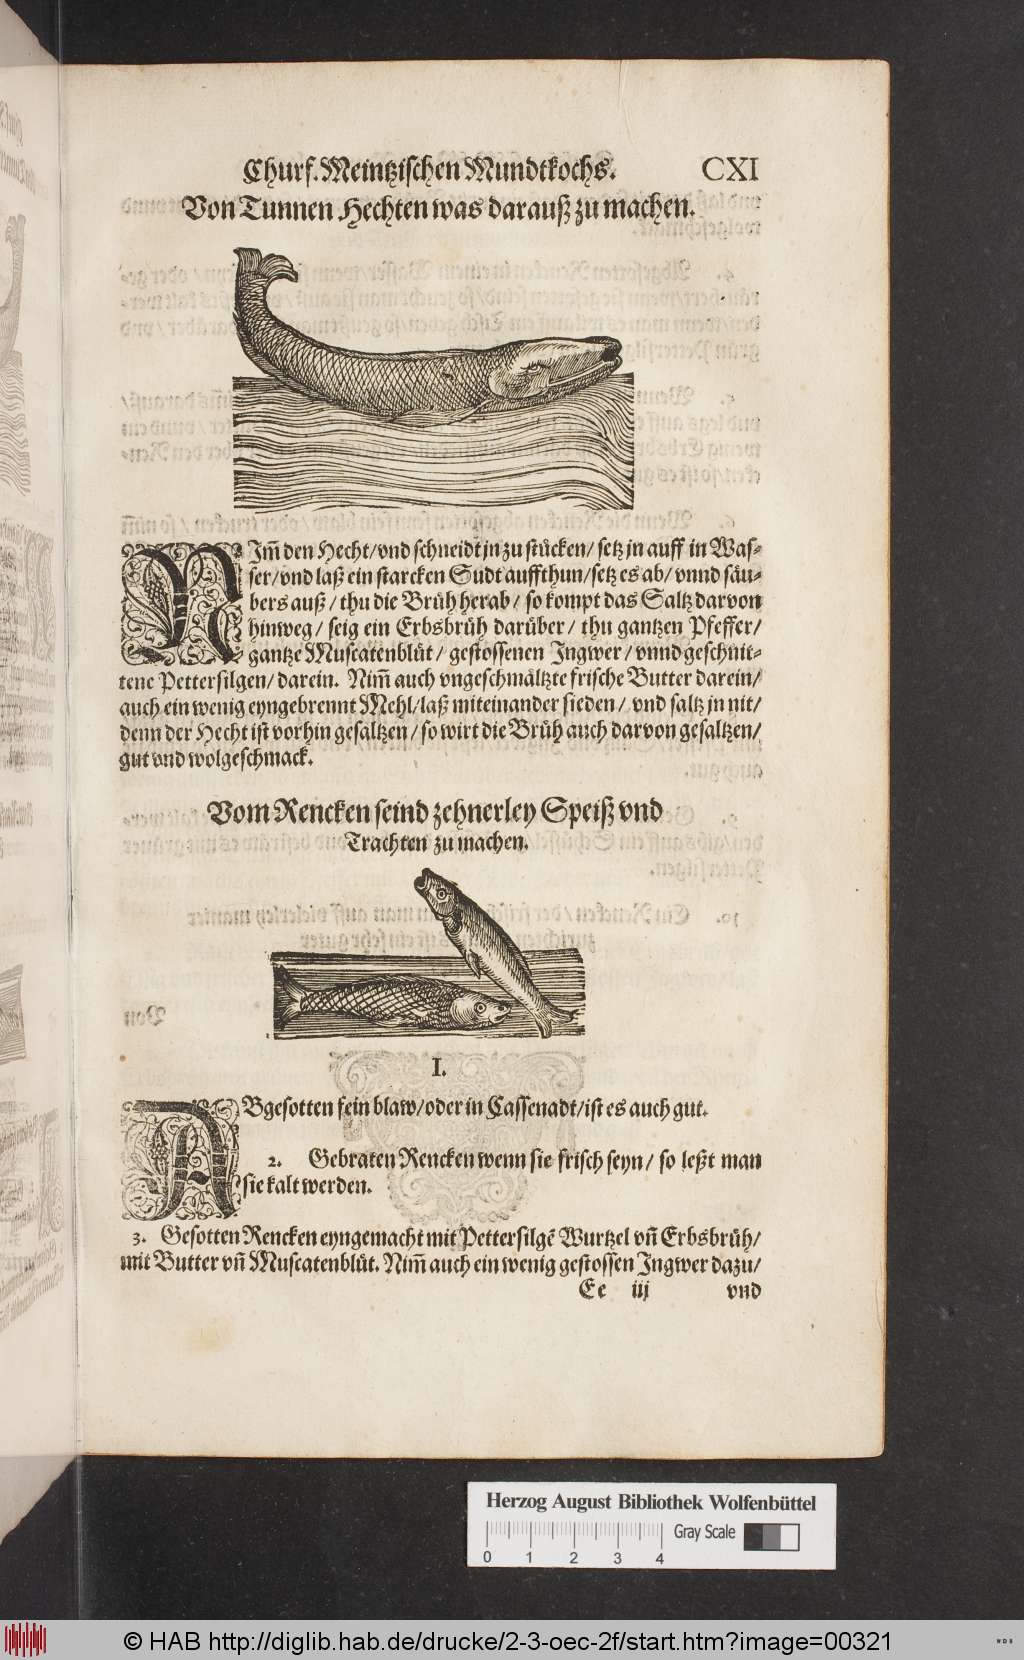 Churf. Meintzischen Mundtkochs. CXI
Von Tunnen Hechten was darauß zu machen.
NIm̃ den Hecht/ vnd schneidt jn zu stücken/ setz jn auff in Was-
ser/ vnd laß ein starcken Sudt auffthun/ setz es ab/ vnnd säu-
bers auß/ thu die Brüh herab/ so kompt das Saltz darvon
hinweg/ seig ein Erbsbrüh darüber/ thu gantzen Pfeffer/
gantze Muscatenblüt/ gestossenen Ingwer/ vnnd geschnit-
tene Pettersilgen/ darein. Nim̃ auch vngeschmältzte frische Butter darein/
auch ein wenig eyngebrennt Mehl/ laß miteinander sieden/ vnd saltz jn nit/
denn der Hecht ist vorhin gesaltzen/ so wirt die Brüh auch darvon gesaltzen/
gut vnd wolgeschmack.
Vom Rencken seind zehnerley Speiß vnd
Trachten zu machen.
I.
ABgesotten fein blaw/ oder in Cassenadt/ ist es auch gut.
2. Gebraten Rencken wenn sie frisch seyn/ so leßt man
sie kalt werden.
3. Gesotten Rencken eyngemacht mit Pettersilgẽ Wurtzel vñ Erbsbrüh/
mit Butter vñ Muscatenblüt. Nim̃ auch ein wenig gestossen Ingwer dazu/
Ee iij vnd
Herzog August Bibliothek Wolfenbüttel
Gray Scale
0 1 2 3 4
© HAB http://diglib.hab.de/drucke/2-3-oec-2f/start.htm?image=00321